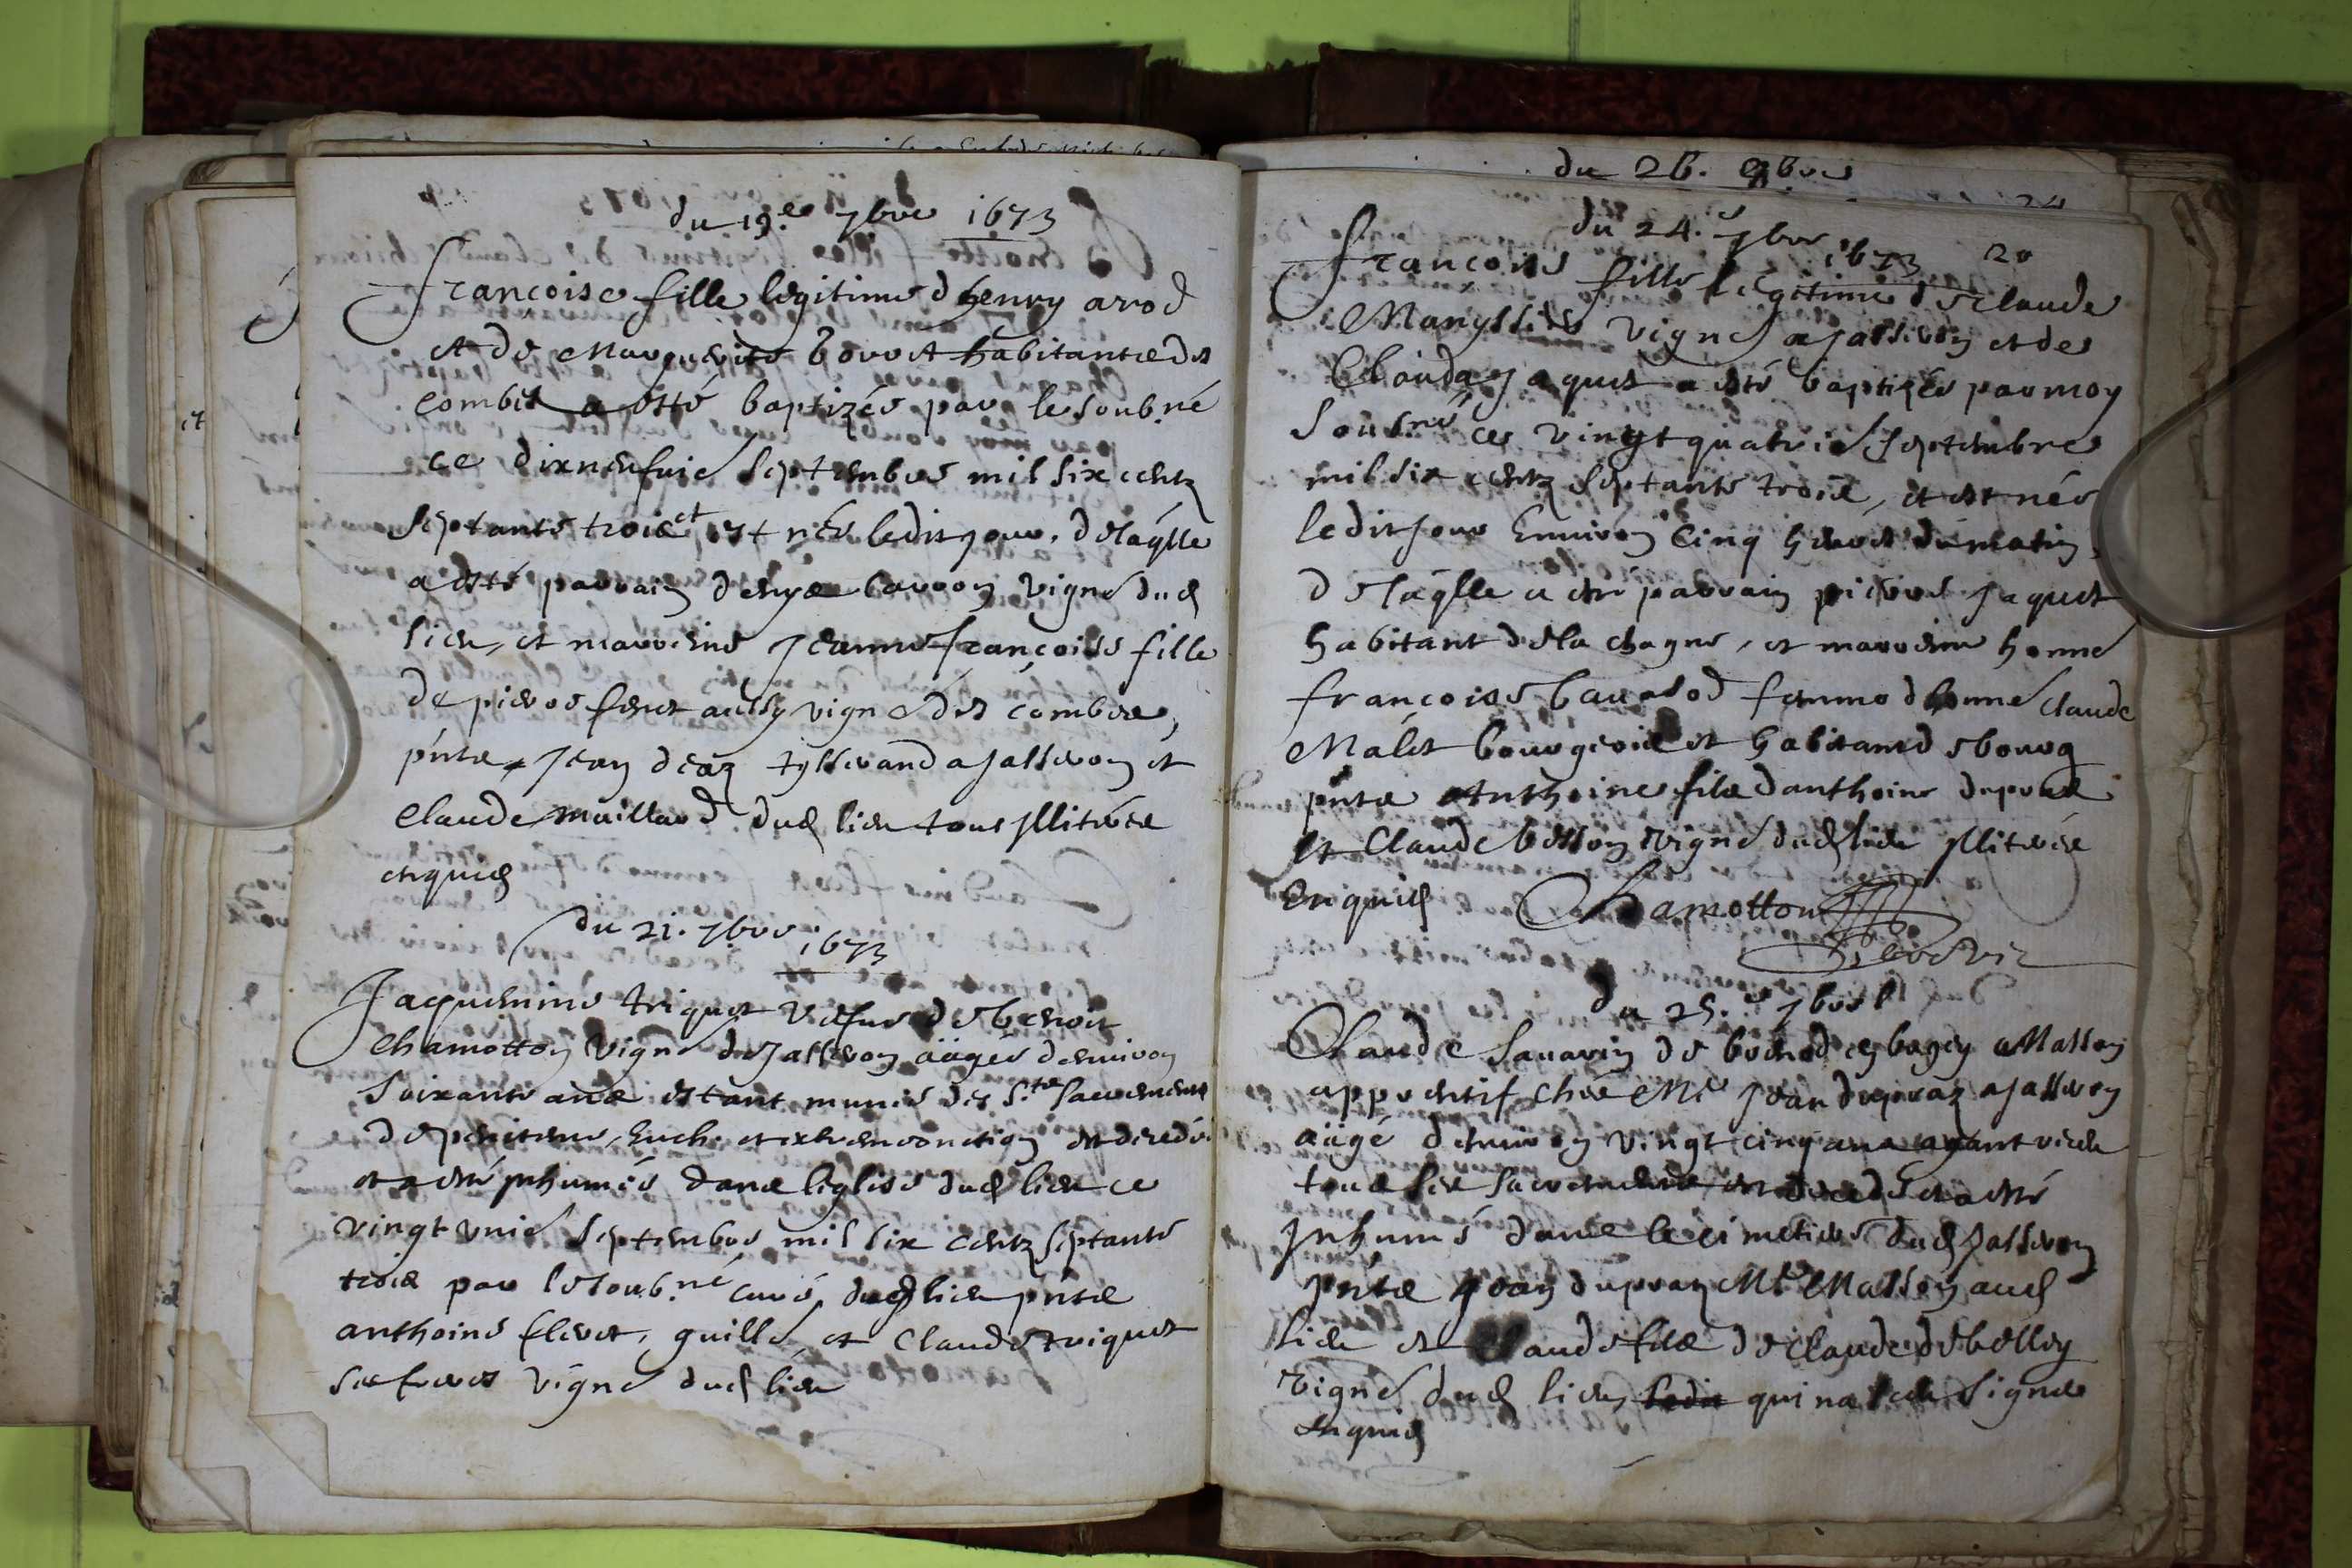 du 19.e 7bre 1673
Francoise fille legitime d henry arod
et de Marguerite boret habitantz des
combes a esté baptizée par le soub.né
ce dixneufuie septembre mil six centz
septante trois et est née ledit jour. delaqlle
a esté parrain denys baron vigne dud
lieu, et marreine Jeanne françoise fille
de pierre feret aussy vigne des combes,
pntz Jean deaz tysserand a Jasseron et
Claude maillard dud lieu tous yllitérés
enquis
du 21. 7bre 1673
Jaquemine triquet vefue de benoit
Chamotton vigne de Jasseron aagée denuiron
soixante ans estant munie des S.ts sacrements
de penitence, Euch. et extremonction est decedée
et a esté jnhumée dans leglise dud lieu ce
vingt vnie septembre mil six centz septante
trois par le soub.né curé dud lieu pntz
anthoine feret, guille, et Claude triquet
ses freres vigne dud lieu
du 26. 9bre
du 24.e 7bre 1673 20
francoise fille legitime de Claude
vigne a Jasseron et de
Clauda Jaquet a esté baptizée par moy
soubné ce vingt quatrie septembre
mil six centz septante trois, et est née
ledit jour enuiron cinq heures du matin,
delaqlle a esté parrain pierre Jaquet
habitant de la chagne, et marreine honne
françoise femme d honne Claude
Malet bourgeois et habitant de bourg
pntz Anthoine filz danthoine dupraz
et Claude besson vigne dud lieu yllitérés
enquis Chamotton

du 25.e 7bre
Claude sauarin de en bugey Masson
apprentif chez Me Jean dupraz a Jasseron
aagé denuiron vingt cinq ans ayant receu
tous ses sacrements est decedé et a esté
jnhumé dans le cimetiere dud Jasseron
pntz Jean dupraz Me Masson aud
lieu et Claude filz de Claude
vigne dud lieu, qui na sceu signer
enquis